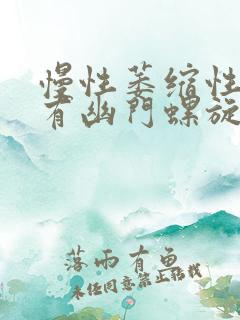 慢性萎缩性
有幽門螺旋
落雨有鱼
未经同意禁止转载